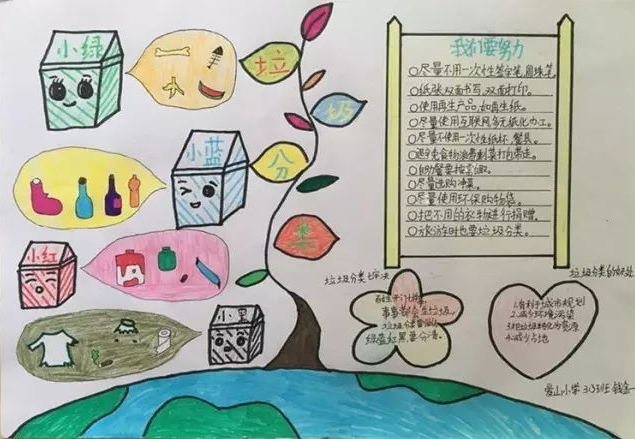 小绿
垃
圾
分
类
小蓝
小红
小黑
我们要努力
○尽量不用一次性签字笔、圆珠笔。
○纸张双面书写、双面打印。
○使用再生产品,如再生纸。
○尽量使用互联网多无纸化办工。
○尽量不使用一次性纸杯、餐具。
○避免食物浪费剩菜打包带走。
○自助餐要按需取。
○尽量选购净菜。
○尽量使用环保购物袋。
○把不用的衣物进行捐赠。
○旅游时也要垃圾分类。
垃圾分类七字决
事事都会生垃圾,
绿蓝红黑要分清。
垃圾分类的好处
1.有利于城市规划
2.减少环境污染
4.减少占地
爱山小学 313班 钱金一